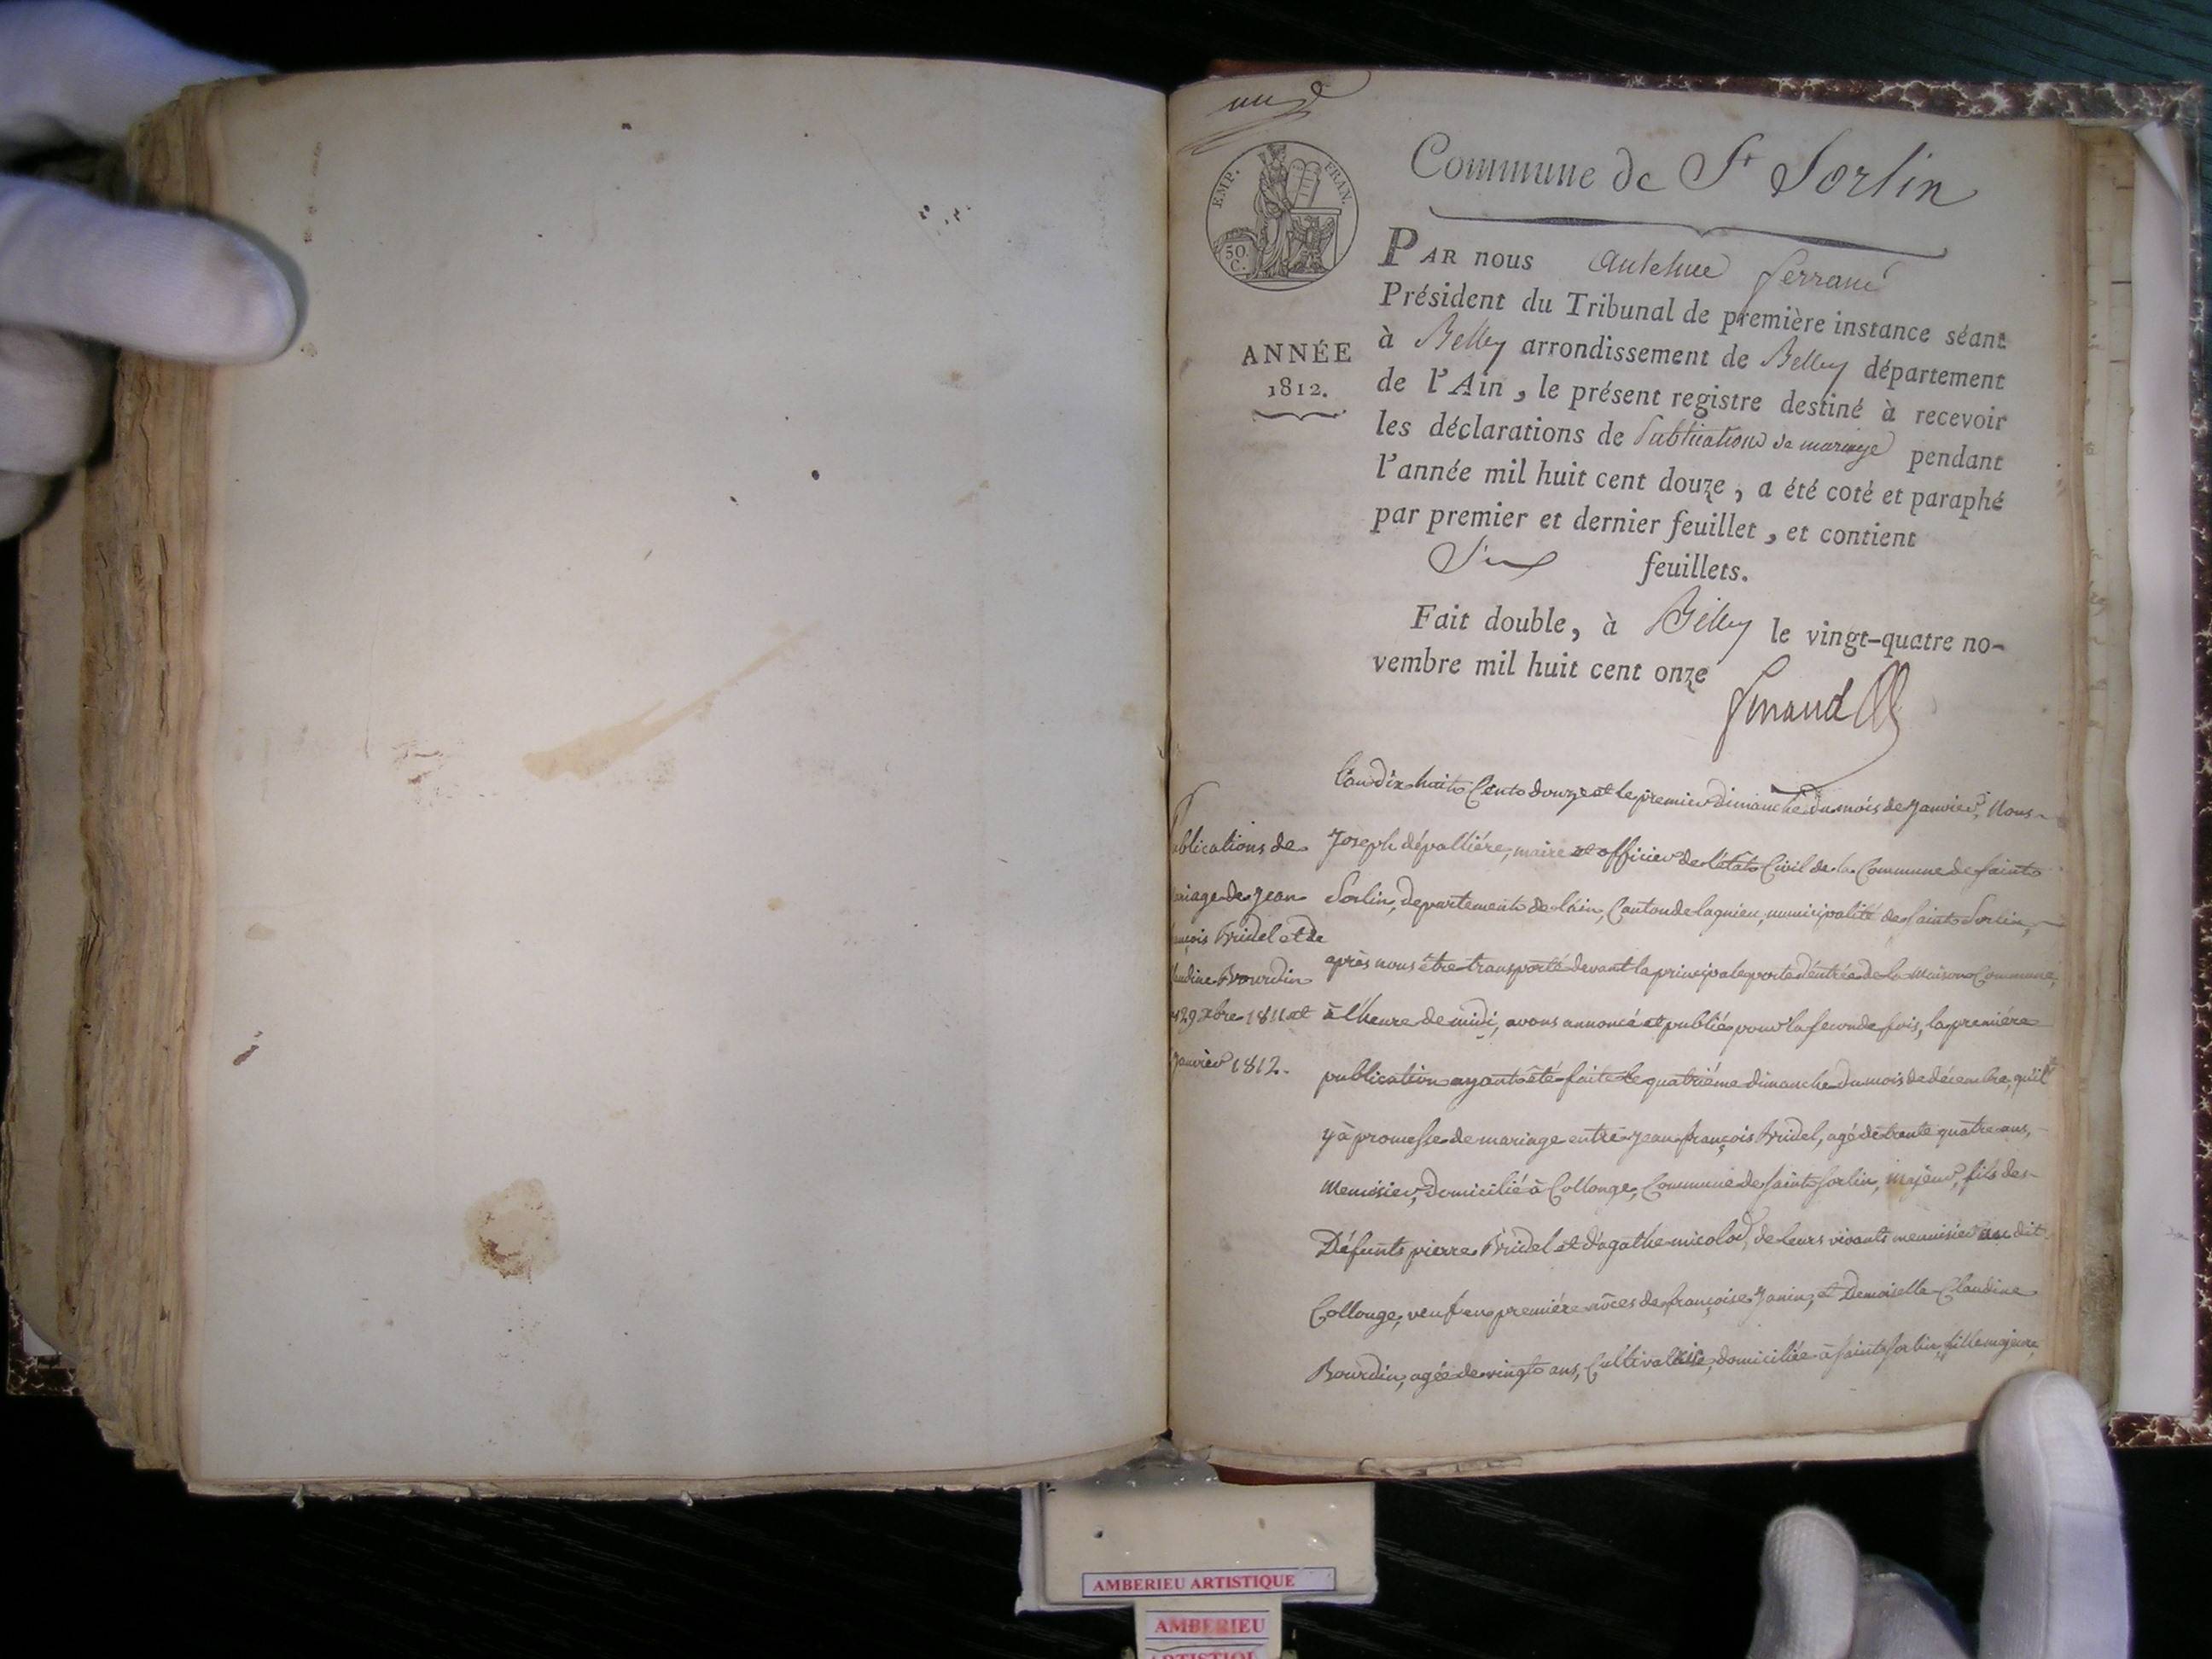 Commune de St Sorlin
EMP. FRAN.
50. C.
PAR nous Anthelme ferrand
Président du Tribunal de première instance séant
à Belley arrondissement de Belley département
ANNÉE
1812.
de l'Ain, le présent registre destiné à recevoir
les déclarations de Publications de mariage pendant
l'année mil huit cent douze, a été coté et paraphé
par premier et dernier feuillet, et contient
Six feuillets.
Fait double, à Belley le vingt-quatre no-
vembre mil huit cent onze
ferrand
L'an dix huit Cent douze et le premier dimanche du mois de janvier, Nous
Joseph dépallière, maire et officier de l'état Civil de la Commune de saint
Sorlin, departement de lain, Canton de lagnieu, municipalité de saint Sorlin,
après nous être transporté devant la principale porte d'éntrée de la Maison Commune,
à l'heure de midi, avons annoncé et publié pour la seconde fois, la première
publication ayant été faite le quatriéme dimanche du mois de décembre, qu'il
y à promesse de mariage entre jean françois Bridel, agé de trente quatre ans,
Menuisier, domicilié à Collonge, Commune de saint sorlin, majeur, fils des
Défunts pierre Bridel et d'agathe micolod, de leurs vivants menuisier au dit
Collonge, veuf en première nôces de françoise Janin, et Demoiselle Claudine
Bourdin, agée de vingt ans, Cultivatrise, domiciliée à saint sorlin, fille majeure,
ublications de
riage de jean
ançois Bridel et de
laudine Bourdin
29 Xbre 1811 et
janvier 1812.
AMBERIEU ARTISTIQUE
AMBERIEU
ARTISTIQUE